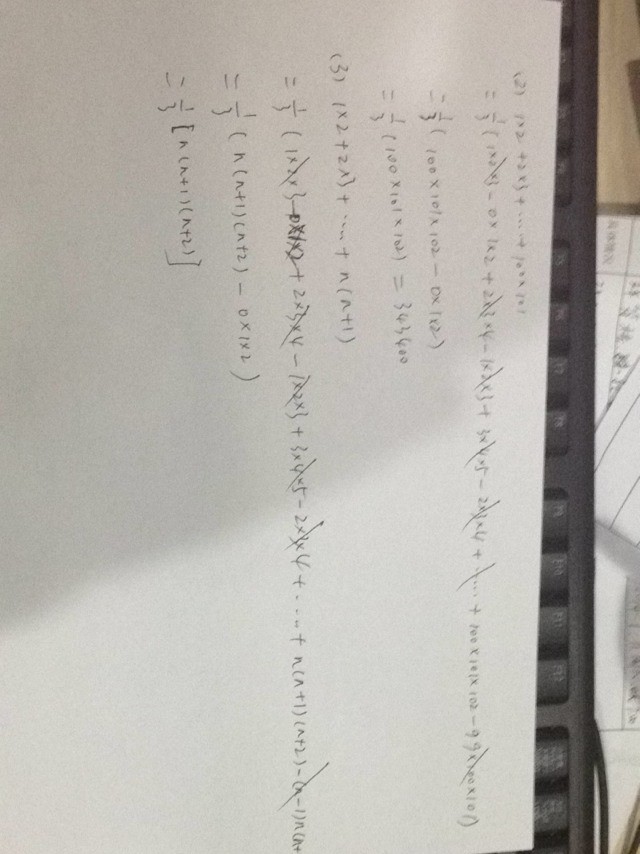 (2) 1×2+2×3+……+100×101
=1/3(1×2×3-0×1×2+2×3×4-1×2×3+3×4×5-2×3×4+……+100×101×102-99×100×101)
=1/3(100×101×102-0×1×2)
=1/3(100×101×102)=343400
(3) 1×2+2×3+……+n(n+1)
=1/3(1×2×3-0×1×2+2×3×4-1×2×3+3×4×5-2×3×4+……+n(n+1)(n+2)-(n-1)n(n+
=1/3(n(n+1)(n+2)-0×1×2)
=1/3[n(n+1)(n+2)]